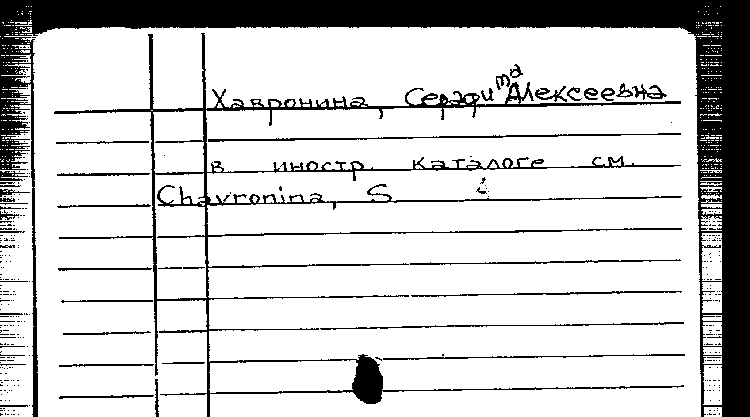 Хавронина, Серафима Алексеевна
в иностр. каталоге см.
Chavronina, S